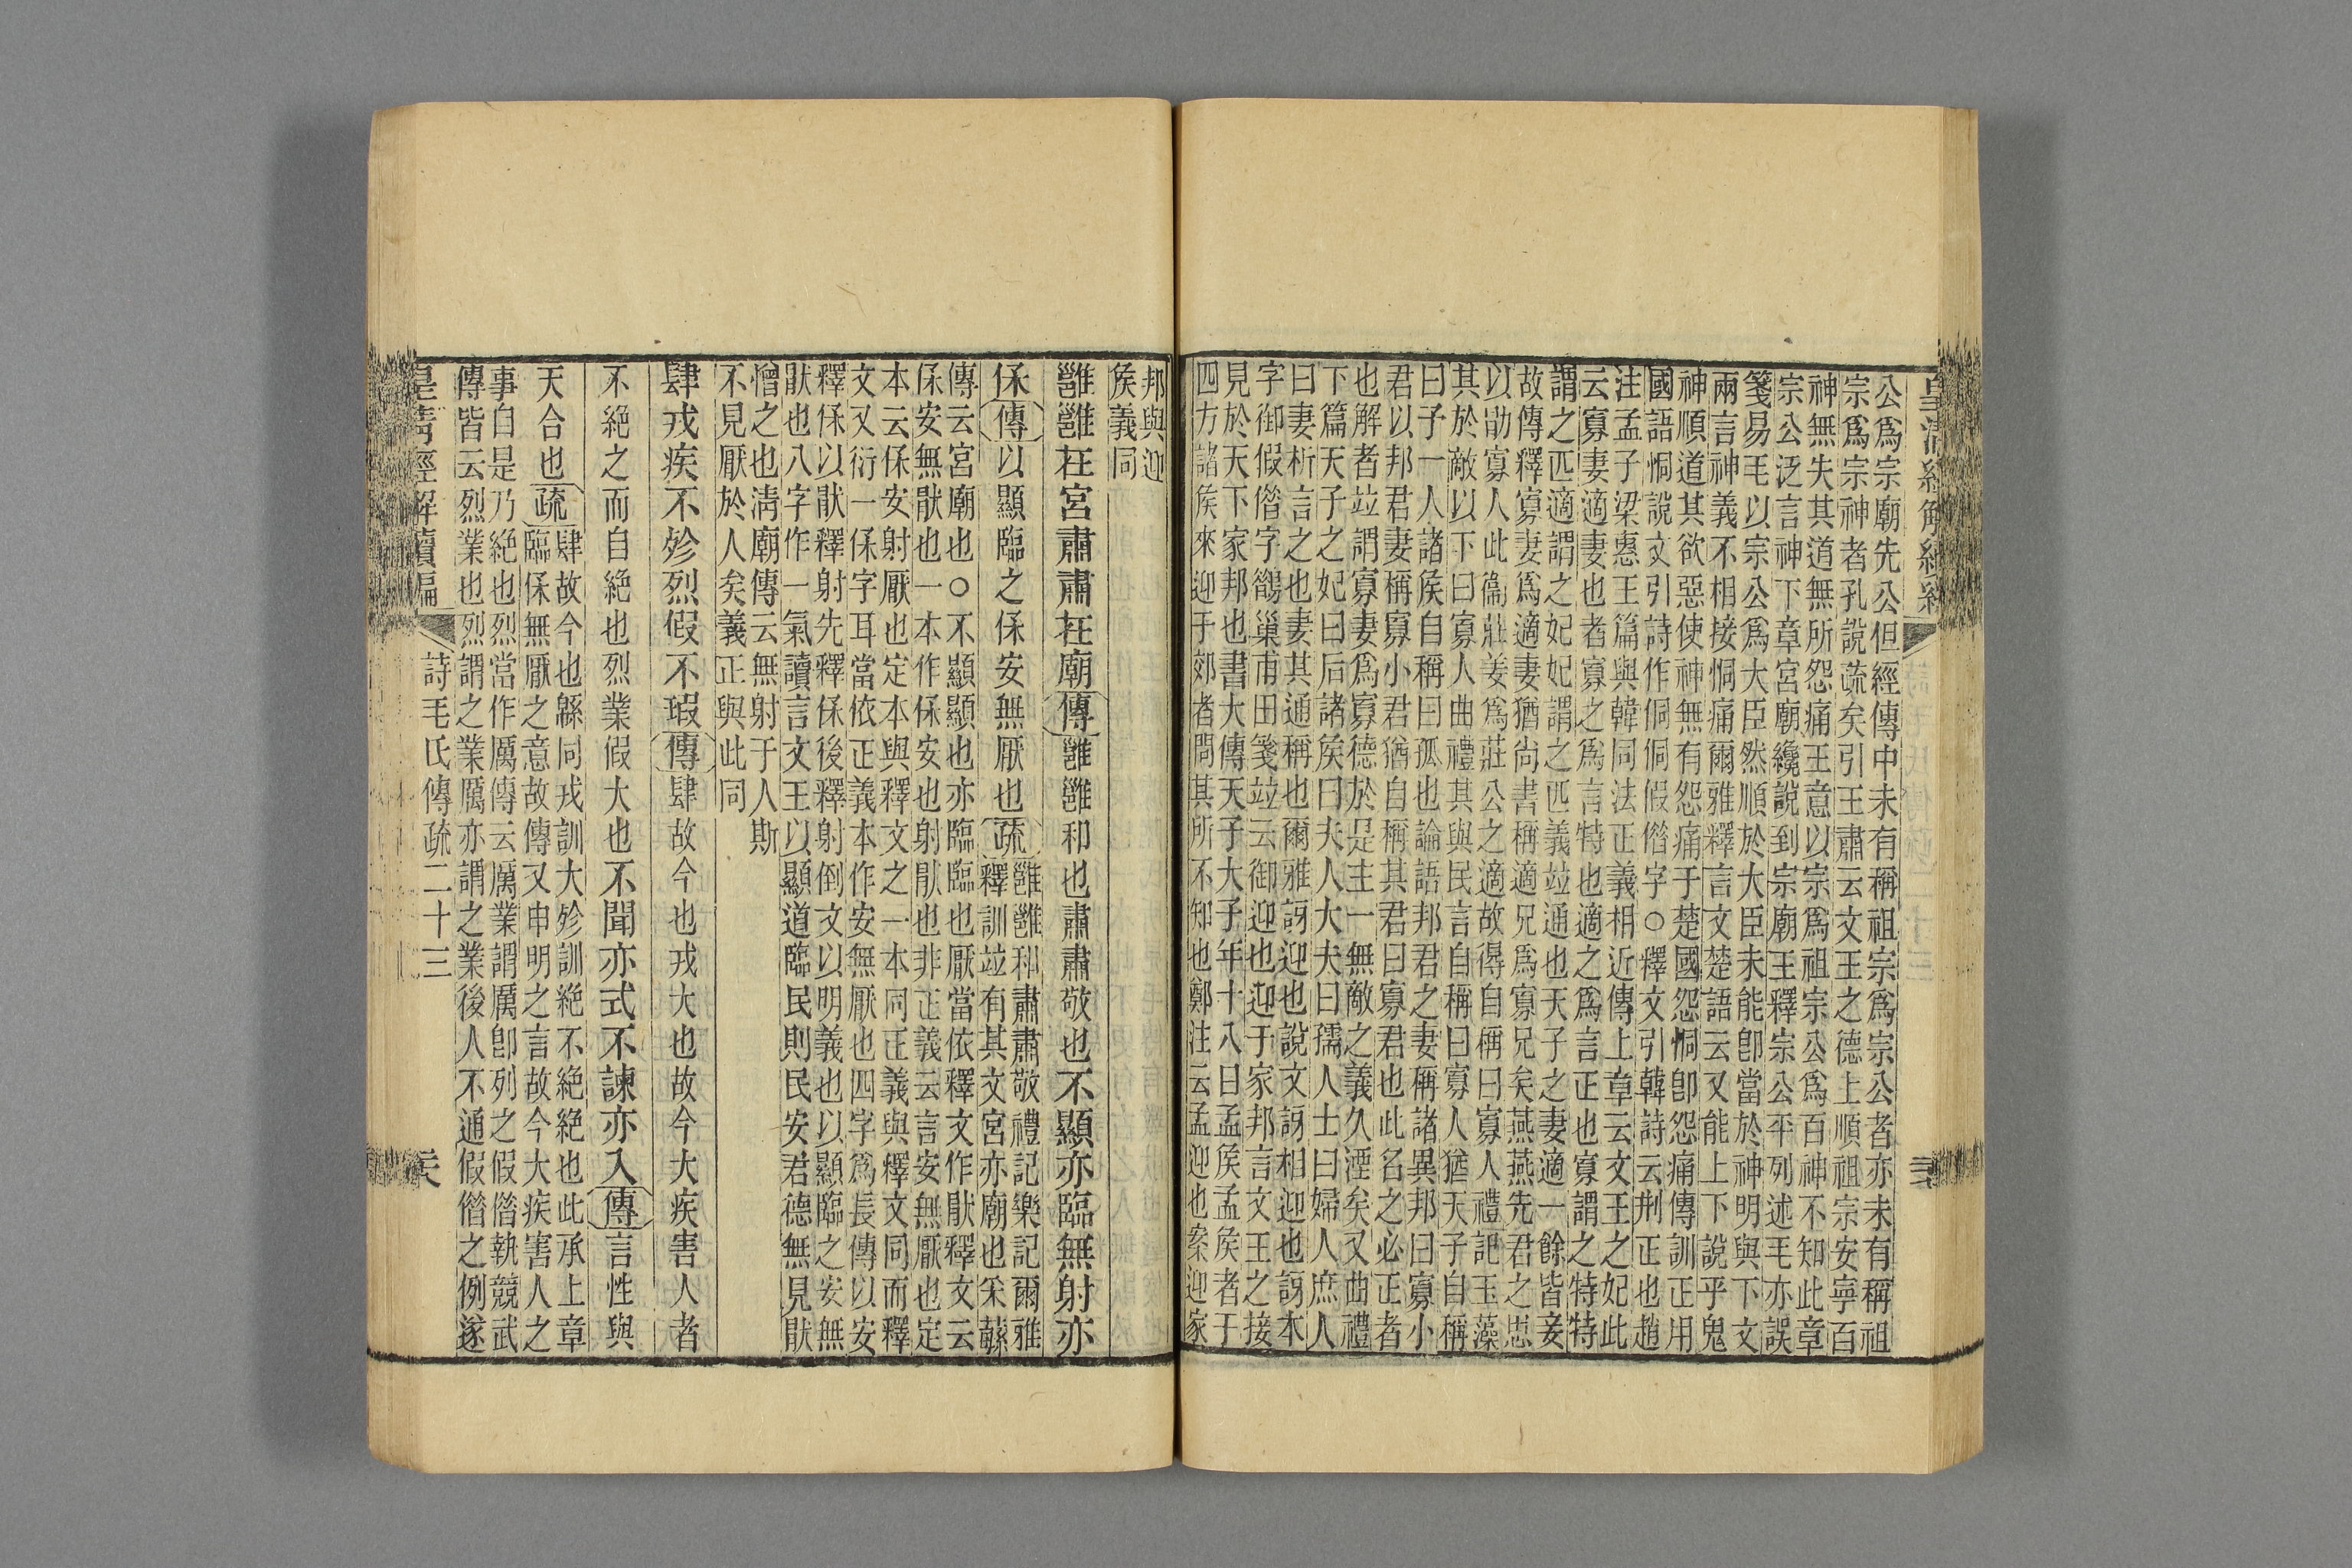 公爲宗廟先公但經傳中未有稱祖宗爲宗公者亦未有稱祖
宗爲宗神者孔說疏矣引王肅云文王之德上順祖宗安寧百
神無失其道無所怨痛王意以宗爲祖宗公爲百神不知此章
宗公泛言神下章宮廟纔說到宗廟王釋宗公平列述毛亦誤
箋易毛以宗公爲大臣然順於大臣未能卽當於神明與下文
兩言神義不相接恫痛爾雅釋言文楚語云又能上下說乎鬼
神順道其欲惡使神無有怨痛于楚國怨恫卽怨痛傳訓正用
國語恫說文引詩作侗侗假借字○釋文引韓詩云刑正也趙
注孟子梁惠王篇與韓同法正義相近傳上章云文王之妃此
云寡妻適妻也者寡之爲言特也適之爲言正也寡謂之特特
謂之匹適謂之妃妃謂之匹義竝通也天子之妻適一餘皆妾
故傳釋寡妻爲適妻猶尚書稱適兄爲寡兄矣燕燕先君之思
以勖寡人此衞莊姜爲莊公之適故得自稱曰寡人禮記玉藻
其於敵以下曰寡人曲禮其與民言自稱曰寡人猶天子自稱
曰予一人諸矦自稱曰孤也論語邦君之妻稱諸異邦曰寡小
君以邦君妻稱寡小君猶自稱其君曰寡君也此名之必正者
也解者竝謂寡妻爲寡德於是主一無敵之義久湮矣又曲禮
下篇天子之妃曰后諸矦曰夫人大夫曰孺人士曰婦人庶人
曰妻析言之也妻其通稱也爾雅訝迎也說文訝相迎也訝本
字御假借字鵲巢甫田箋竝云御迎也迎于家邦言文王之接
見於天下家邦也書大傳天子大子年十八曰孟矦孟矦者于
四方諸矦來迎于郊者問其所不知也鄭注云孟迎也案迎家
邦與迎
矦義同
雝雝在宮肅肅在廟傳雝雝和也肅肅敬也不顯亦臨無射亦
保傳以顯臨之保安無厭也疏雝雝和肅肅敬禮記樂記爾雅
釋訓竝有其文宮亦廟也采蘩
傳云宮廟也○不顯顯也亦臨臨也厭當依釋文作猒釋文云
保安無猒也一本作保安也射猒也非正義云言安無厭也定
本云保安射厭也定本與釋文之一本同正義與釋文同而釋
文又衍一保字耳當依正義本作安無厭也四字爲長傳以安
釋保以猒釋射先釋保後釋射倒文以明義也以顯臨之安無
猒也八字作一氣讀言文王以顯道臨民則民安君德無見猒
憎之也淸廟傳云無射于人斯
不見厭於人矣義正與此同
肆戎疾不殄烈假不瑕傳肆故今也戎大也故今大疾害人者
不絶之而自絶也烈業假大也不聞亦式不諫亦入傳言性與
天合也疏肆故今也緜同戎訓大殄訓絶不絶絶也此承上章
臨保無厭之意故傳又申明之言故今大疾害人之
事自是乃絶也烈當作厲傳云厲業謂厲卽列之假借執競武
傳皆云烈業也烈謂之業厲亦謂之業後人不通假借之例遂
皇淸經解續編 詩毛氏傳疏二十三